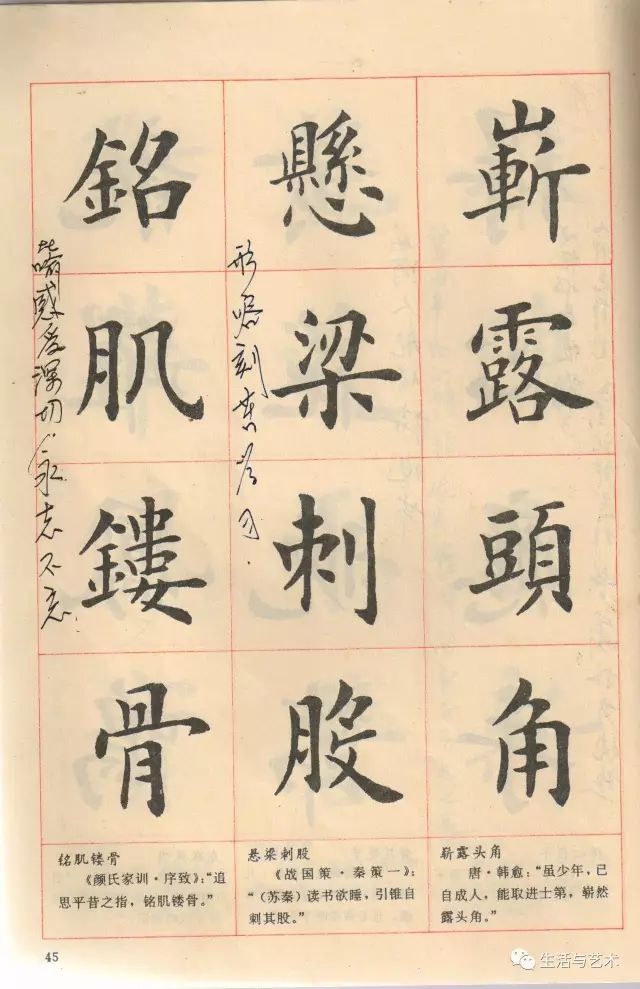 嶄露頭角
懸梁刺股
形喻刻苦学习.
銘肌鏤骨
比喻感受深切.永志不忘
崭露头角
唐·韩愈：“虽少年，已
自成人，能取进士第，崭然
露头角。”
悬梁刺股
《战国策·秦策一》：
“（苏秦）读书欲睡，引锥自
刺其股。”
铭肌镂骨
《颜氏家训·序致》：“追
思平昔之指，铭肌镂骨。”
45
生活与艺术